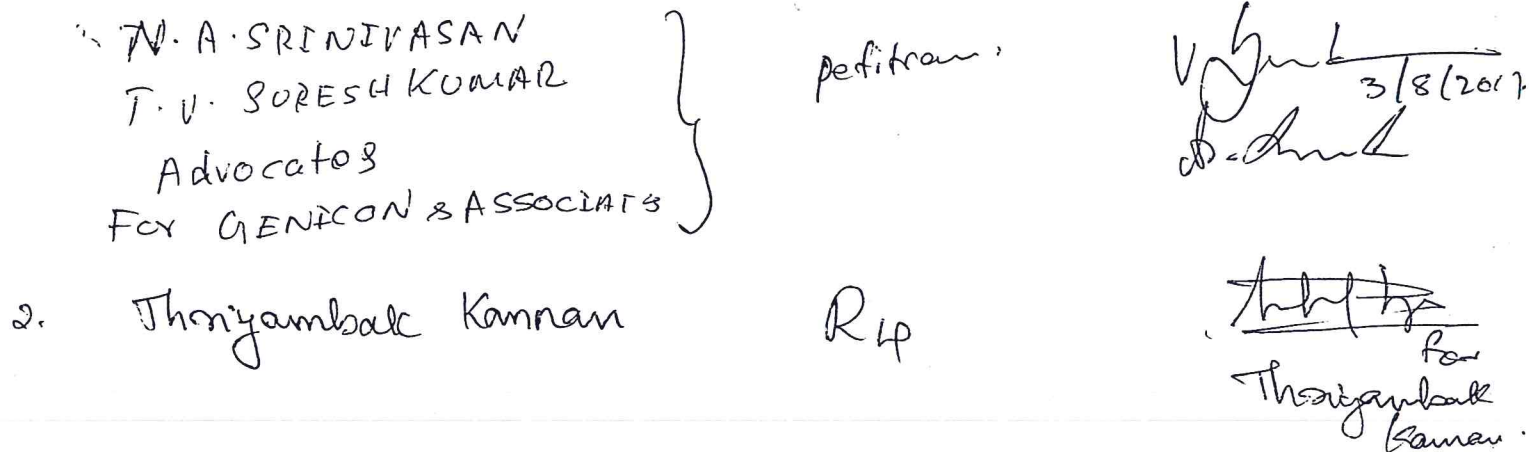 N. A. SRINIVASAN
T. V. SURESH KUMAR
Advocates
For GENICON & ASSOCIATS
petitioner
3/8/2017
2. Thriyambak Kannan R4
for
Thriyambak
Kannan.